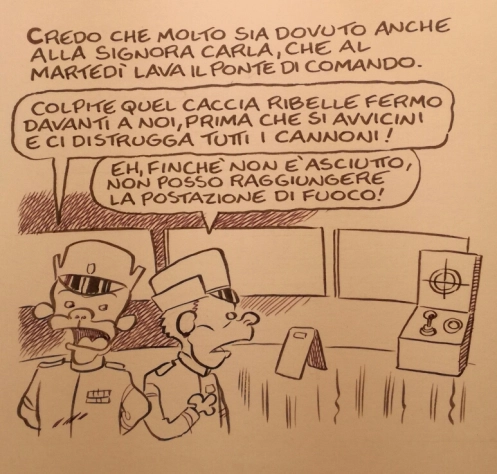 CREDO CHE MOLTO SIA DOVUTO ANCHE
ALLA SIGNORA CARLA, CHE AL
MARTEDÌ LAVA IL PONTE DI COMANDO.
COLPITE QUEL CACCIA RIBELLE FERMO
DAVANTI A NOI, PRIMA CHE SI AVVICINI
E CI DISTRUGGA TUTTI I CANNONI!
EH, FINCHÈ NON È ASCIUTTO,
NON POSSO RAGGIUNGERE
LA POSTAZIONE DI FUOCO!